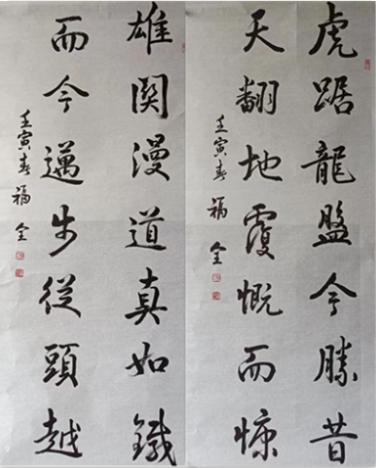 虎踞龍盤今勝昔
天翻地覆慨而慷
壬寅春福全
雄関漫道真如鐵
而今邁步從頭越
壬寅春福全